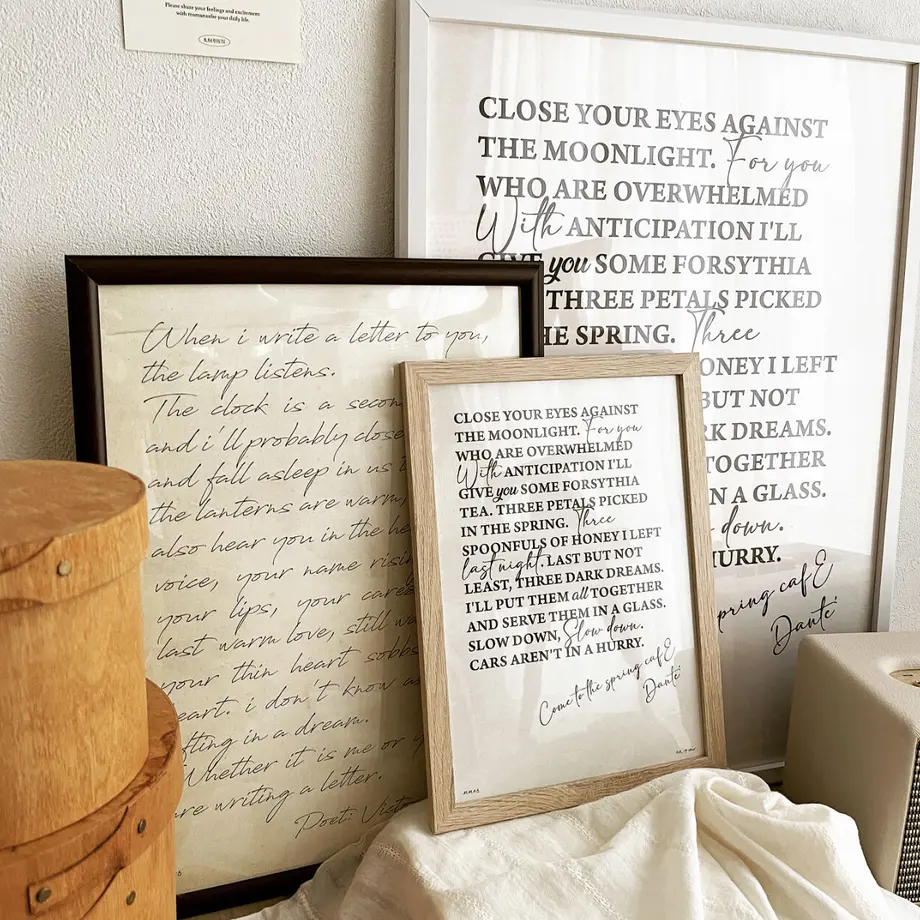 Please share your feelings and excitement
with romanticise your daily life.
CLOSE YOUR EYES AGAINST
THE MOONLIGHT. For you
WHO ARE OVERWHELMED
With ANTICIPATION I'LL
GIVE you SOME FORSYTHIA
THREE PETALS PICKED
HE SPRING. Three
ONEY I LEFT
BUT NOT
RK DREAMS.
TOGETHER
N A GLASS.
down.
HURRY.
pring cafE
Dante'
When i write a letter to you,
the lamp listens.
The clock is a secon
and i'll probably close
and fall asleep in us
the lanterns are warm,
also hear you in the he
voice, your name risin
your lips, your care
last warm love, still w
your thin heart sobb
eart. i don't know a
fting in a dream.
Whether it is me or y
re writing a letter.
Poet: Vict
CLOSE YOUR EYES AGAINST
THE MOONLIGHT. For you
WHO ARE OVERWHELMED
With ANTICIPATION I'LL
GIVE you SOME FORSYTHIA
TEA. THREE PETALS PICKED
IN THE SPRING. Three
SPOONFULS OF HONEY I LEFT
last night. LAST BUT NOT
LEAST, THREE DARK DREAMS.
I'LL PUT THEM all TOGETHER
AND SERVE THEM IN A GLASS.
SLOW DOWN, Slow down.
CARS AREN'T IN A HURRY.
Come to the spring cafE
Dante'